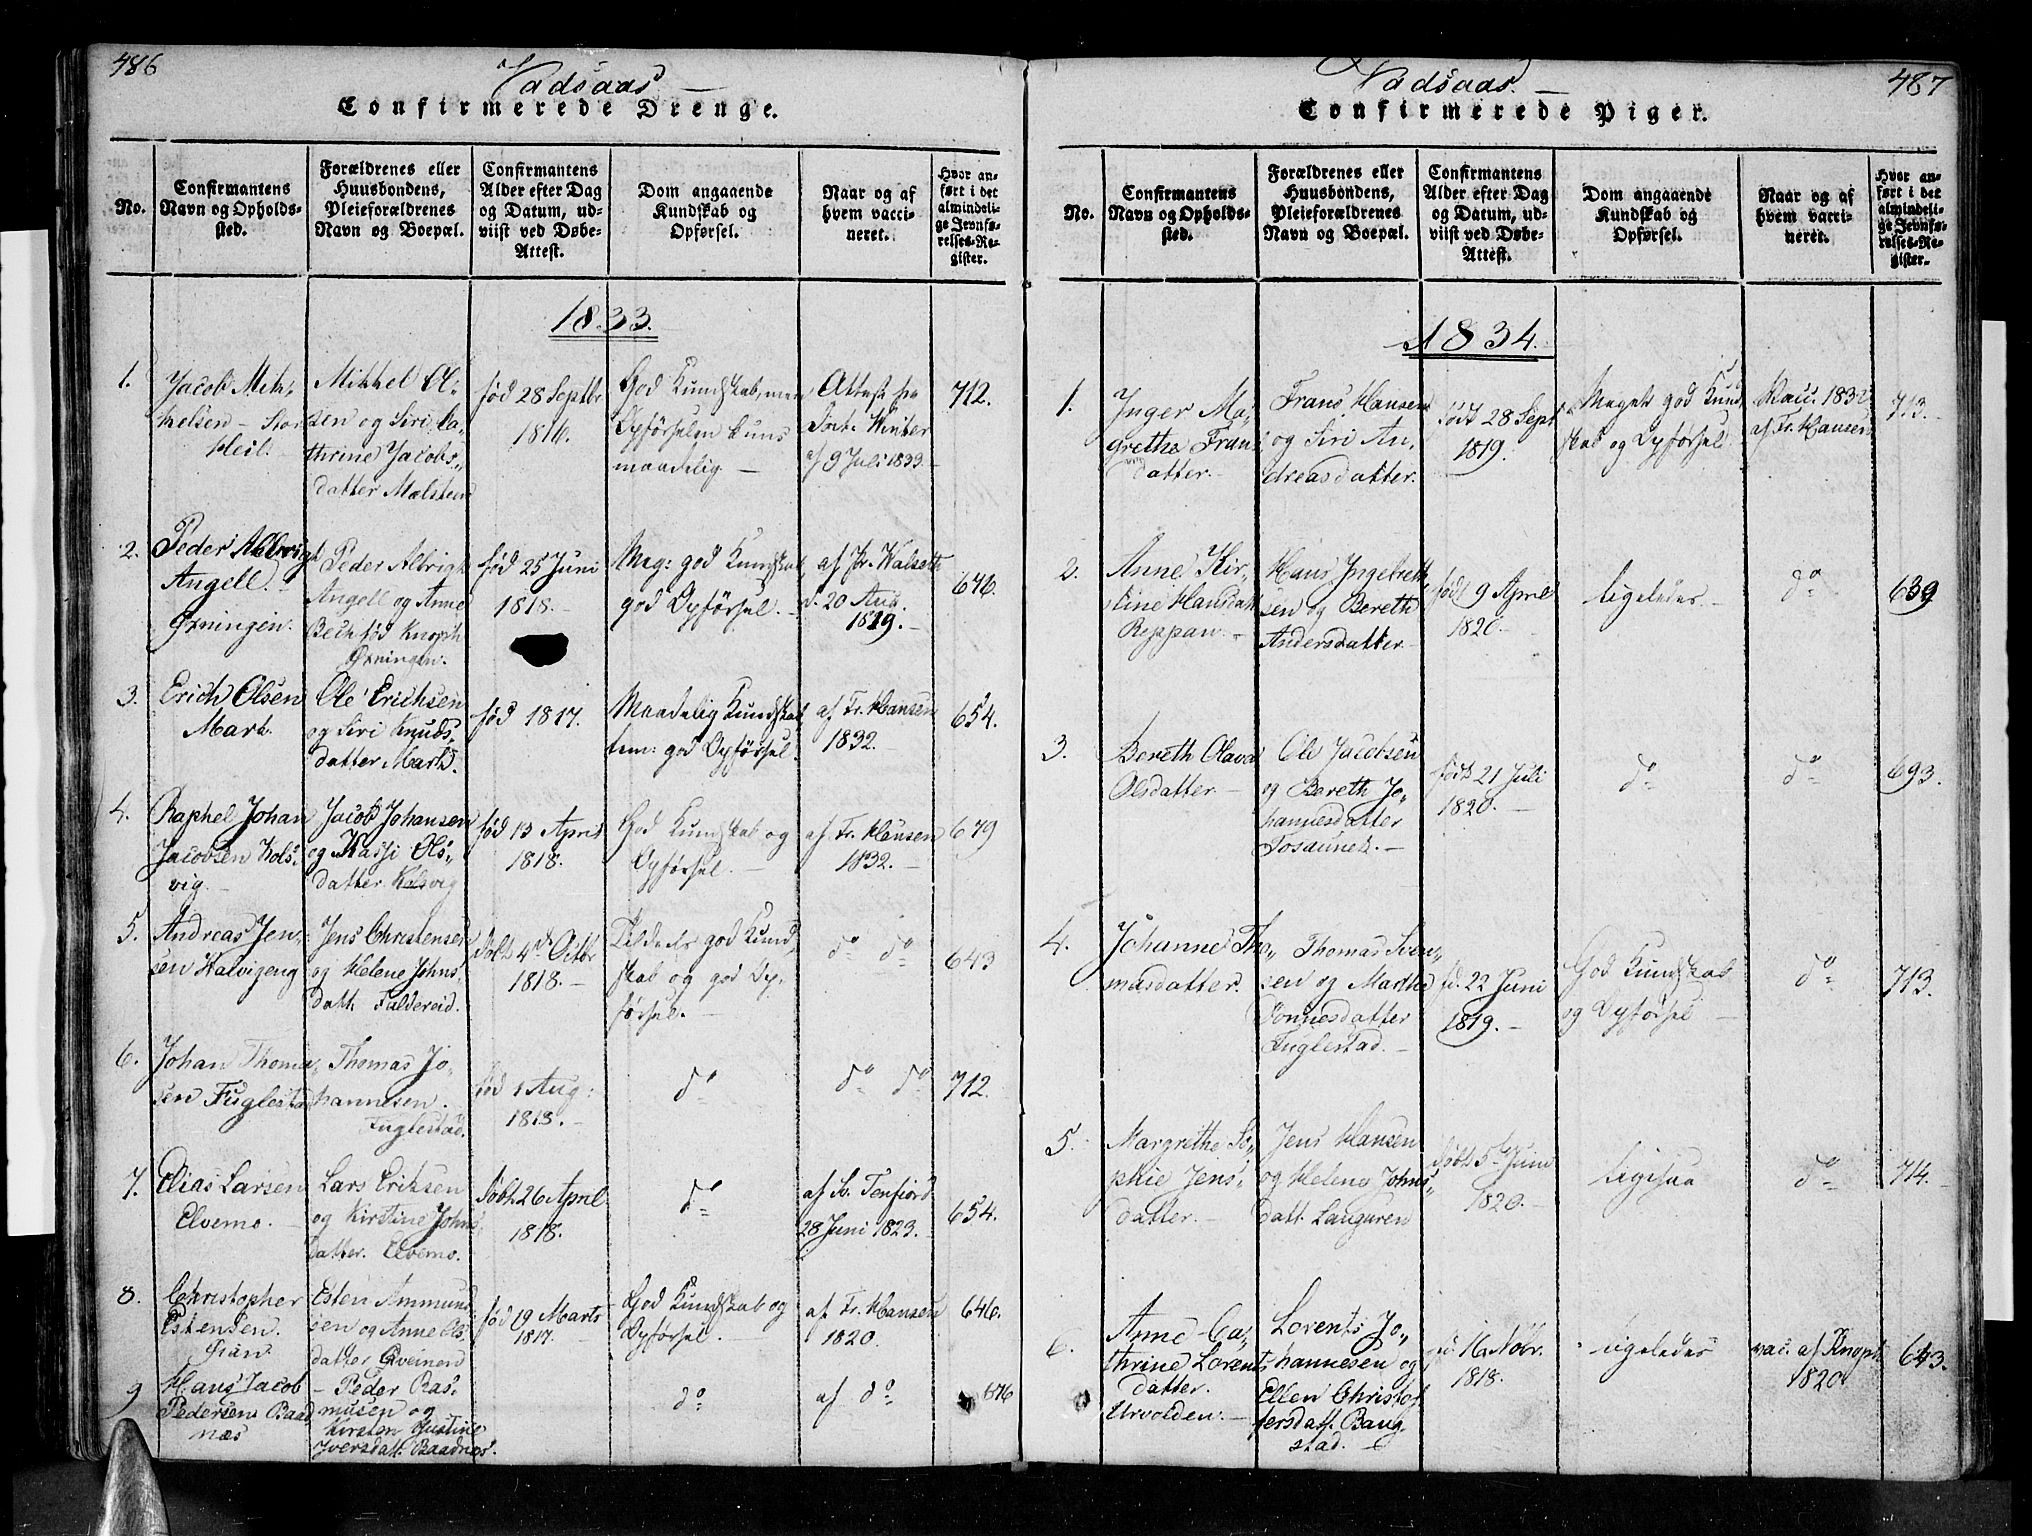 486
Vadsaas. —
Confirmerede Drenge.
No.
Confirmantens
Navn og Opholds-
sted.
Forældrenes eller
Huusbondens,
Pleieforældrenes
Navn og Boepæl.
Confirmantens
Alder efter Dag
og Datum, ud-
viist ved Døbe-
Attest.
Dom angaaende
Kundskab og
Opførsel.
Naar og af
hvem vacci-
neret.
Hvor an-
ført i det
almindeli-
ge Jevnfø-
relses-Re-
gister.
1833.
1.
Jacob Mik-
kelsen – Stor
Heil. –
Mikkel Ol-
sen og Siri Ca-
thrine Jacobs-
datter
fød 28 Septbr
1816.
God Kundskab, men
Opførselen kuns
maadelig –
Attest fra
Winter
af 9 Juli 1833.
712.
2.
Peder Albrigt
Angell. –
Øxningen.
Peder Albrigt
Angell og Anne
Bech fød Knoph
Øxningen.
fød 25 Juni
1818. –
Meg: god Kundskab
god Opførsel. –
af
d. 20 Aug.
1819. –
646.
3.
Erich Olsen
Mark.
Ole Erichsen
og Siri Knuds-
datter Mark.
fød 1817.
Maadelig Kundskab
tem: god Opførsel.
af Fr. Hansen
1832.
654.
4.
Raphel Johan
Jacobsen Kols-
vig. –
Jacob Johansen
og Massi Ols-
datter Kolsvig
fød 13 April
1818.
God Kundskab og
Opførsel. –
af Fr. Hansen
1832. –
679
5.
Andreas Jen-
sen Kalvigeng
Jens Christensen
og Helene Johns-
datt. Faldereid.
Døbt 4de Octbr
1818. –
god Kund-
skab og god Op-
førsel. –
do do
643
6.
Johan Thoma-
sen Fuglestad
Thomas Jo-
hannesen.
Fuglestad.
fød 1 Aug:
1818. –
do
do do
712.
7.
Elias Larsen
Elvemo. –
Lars Eriksen
og Kirstine Johns-
datter. Elvemo.
Døbt 26 April
1818.
do
af Sv. Tenfiord
28 Juni 1823.
654.
8.
Christopher
Estensen.
Esten Ammund-
sen og Anne Ols-
datter Qveinen
fød 19 Marts
1817.
God Kundskab og
Opførsel. –
af Fr. Hansen
1820.
646.
9
Hans Jacob
Pedersen Baad-
næs
– Peder Ras-
musen og
Kirsten Justine
Iversdatt. Baadnæs.
do
af do
676
487
Vadsaas. —
Confirmerede Piger.
No.
Confirmantens
Navn og Opholds-
sted.
Forældrenes eller
Huusbondens,
Pleieforældrenes
Navn og Boepæl.
Confirmantens
Alder efter Dag
og Datum, ud-
viist ved Døbe-
Attest.
Dom angaaende
Kundskab og
Opførsel.
Naar og af
hvem vacci-
neret.
Hvor an-
ført i det
almindeli-
ge Jevnfø-
relses-Re-
gister.
1834.
1.
Inger Ma-
grethe Frans-
datter. –
Frans Hansen
og Siri An-
dreasdatter.
født 28 Sept
1819.
Meget god Kund-
skab og Opførsel. –
Vacc. 1832
af Fr. Hansen
713. –
2.
Anne Kir-
stine Hansdatt
Reppan. –
Hans Ingebreth-
sen og Bereth
Andersdatter
født 9 April
1820. –
ligeledes –
do
639
3.
Bereth Olava
Olsdatter. –
Ole Jacobsen
og Bereth Jo-
hannesdatter
Tosaunet. –
født 21 Juli
1820. –
do
do
693.
4.
Johanne Tho-
masdatter.
Thomas Sven-
sen og Marthe
Tonnesdatter
Fuglestad. –
fd. 22 Juni
1819. –
God Kundskab
og Opførsel –
do
713.
5.
Margrethe So-
phie Jens-
datter. –
Jens Hansen
og Helene Johns-
datt. Langøren
døbt 5te Juni
1820. –
ligesaa
do
714.
6.
Anne Ca-
thrine Lorents
datter.
Urvolden. –
Lorents Jo-
hannesen og
Ellen Christof-
fersdatt. Baug-
stad. –
16 Nobr.
1818.
ligeledes
vac. af Knoph
1820
643.